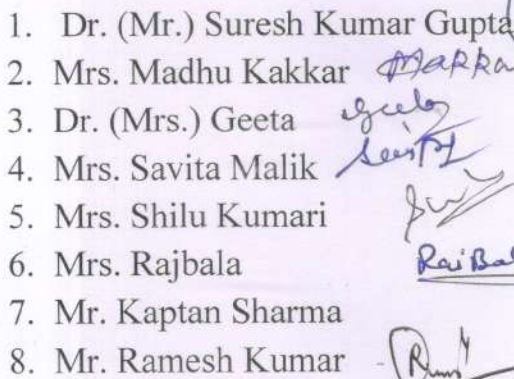 1. Dr. (Mr.) Suresh Kumar Gupta
2. Mrs. Madhu Kakkar
3. Dr. (Mrs.) Geeta Geeta
4. Mrs. Savita Malik
5. Mrs. Shilu Kumari
6. Mrs. Rajbala
7. Mr. Kaptan Sharma
8. Mr. Ramesh Kumar